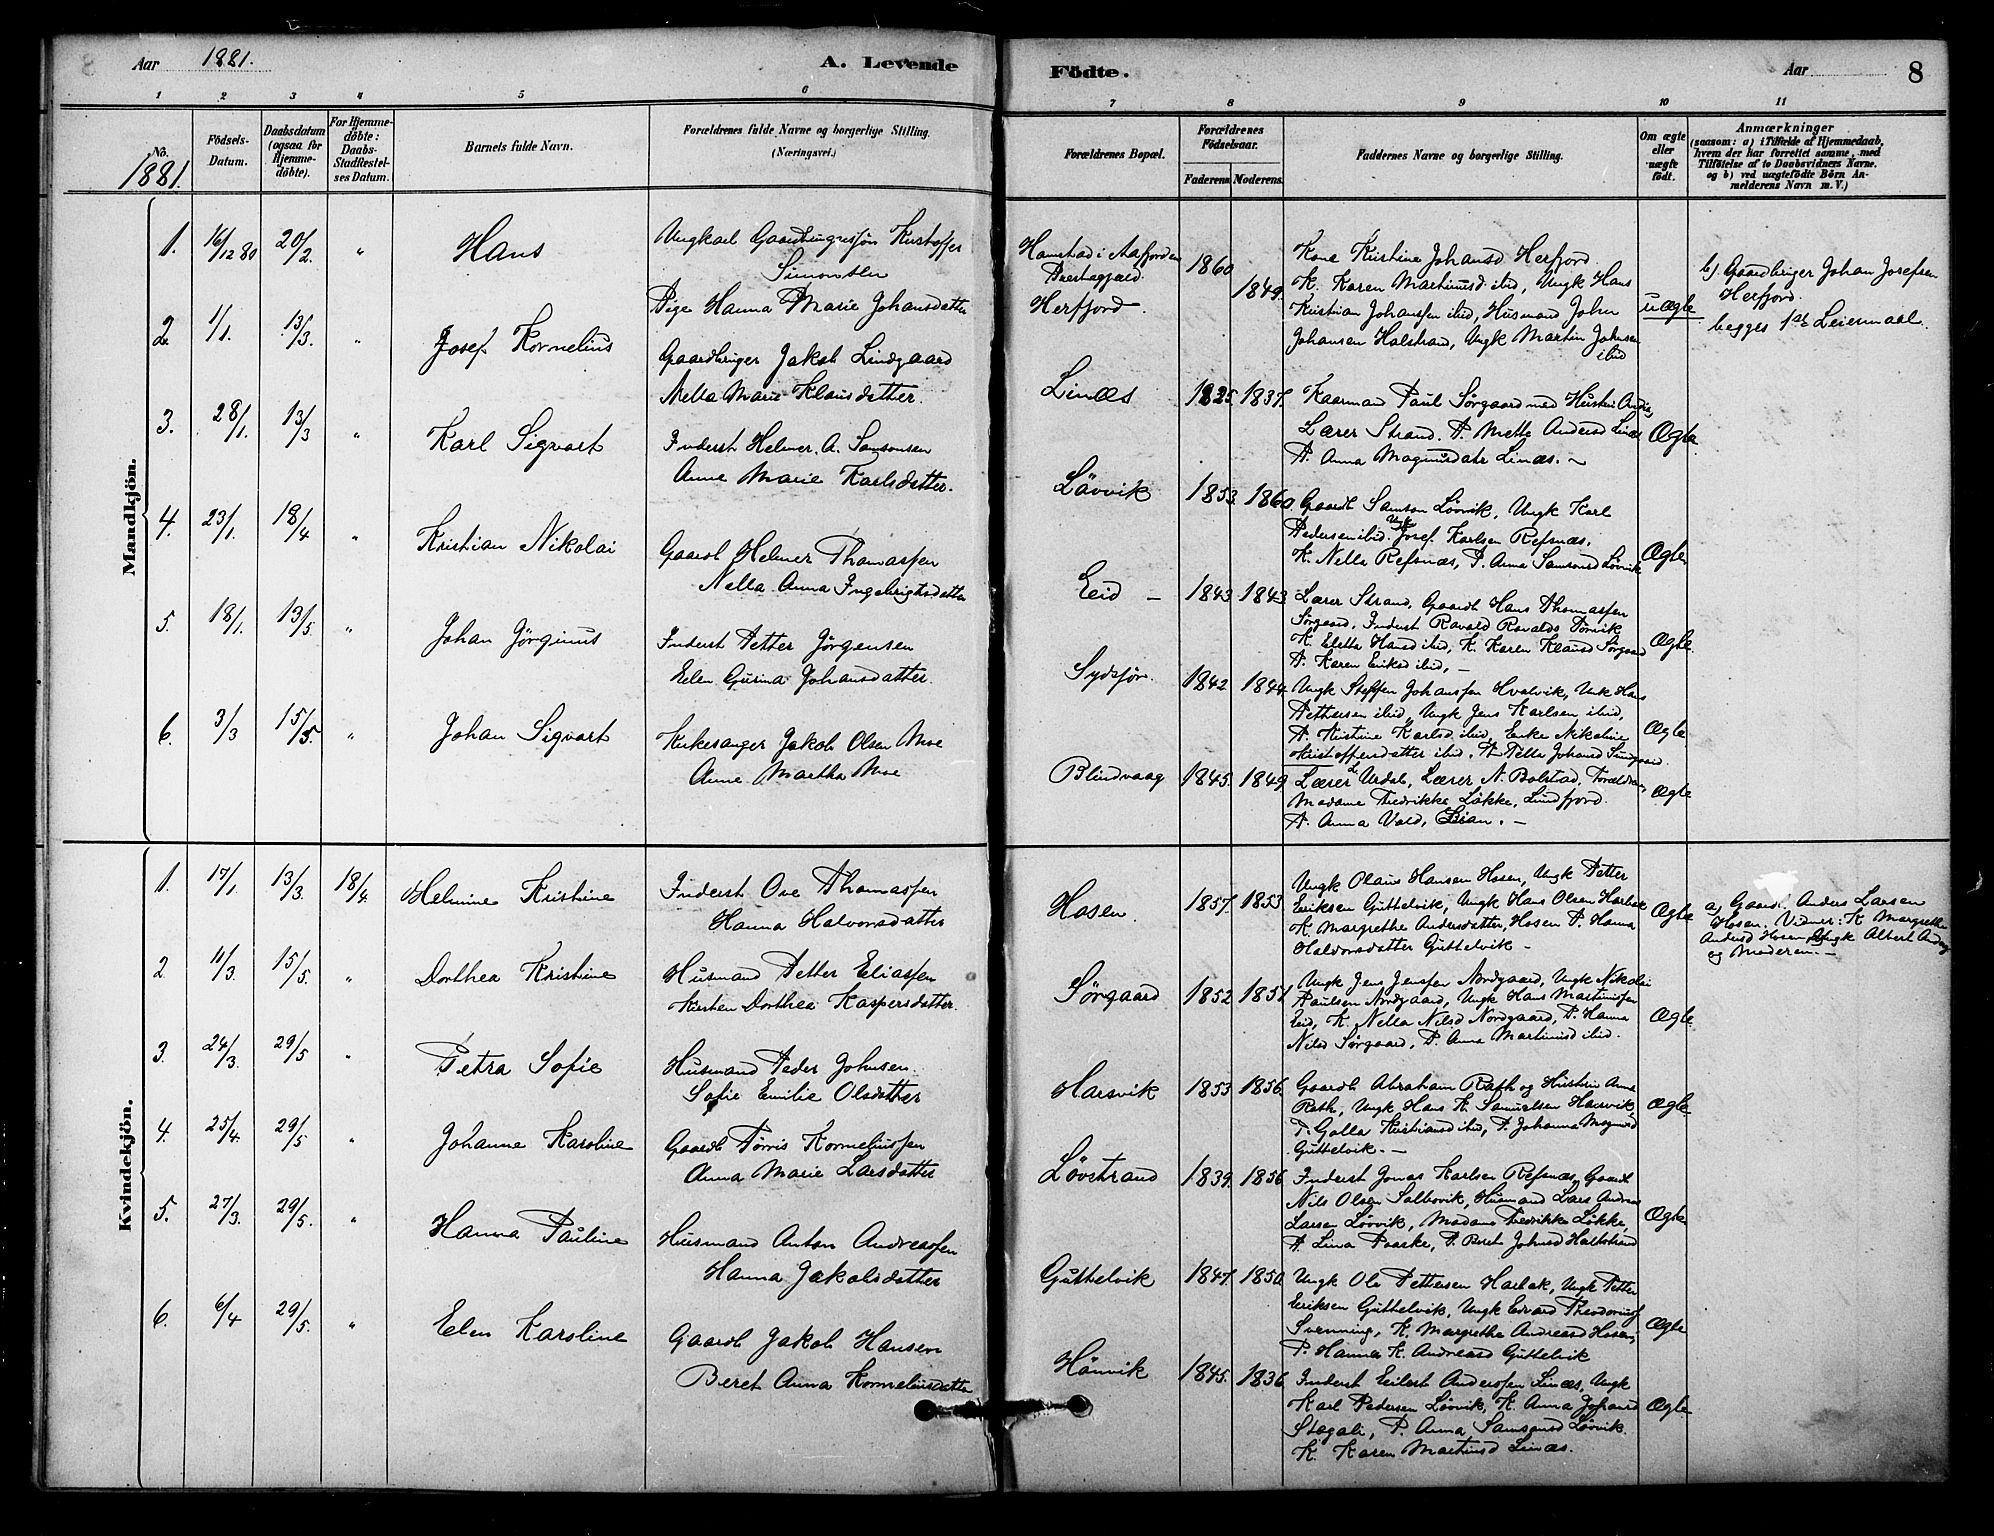 8
Aar 1881.
A. Levende
Födte.
Aar
8
1 2 3 4 5 6 7 8 9 10 11
No.
1881.
Födsels-
Datum.
Daabsdatum
(ogsaa for
Hjemme-
döbte).
For Hjemme-
döbte:
Daabs-
Stadfestel-
ses Datum.
Barnets fulde Navn.
Forældrenes fulde Navne og borgerlige Stilling.
(Næringsvei.)
Forældrenes Bopæl.
Forældrenes
Födselsaar.
Faderens. Moderens.
Faddernes Navne og borgerlige Stilling.
Om ægte
eller
uægte
födt.
Anmærkninger
(saasom: a) i Tilfælde af Hjemmedaab,
hvem der har forrettet samme, med
Tilföielse af to Daabsvidners Navne.
og b) ved uægtefödte Börn An-
melderens Navn m. V.)
Mandkjön.
1. 16/12 80 20/2. " Hans
Ungkarl Gaardbrugersøn Kristoffer
Simonsen
Pige Hanna Marie Johansdatter
Hamstad i Aafjorden
Præstegjæld.
Herfjord.
1860 1849.
Kone Kristine Johansd Herfjord.
K. Karen Martinusd. ibid, Ungk Hans
Kristian Johanssen ibid, Husmand Johan
Johansen Halstrand, Ungk Martin Johnsen
ibid
uægte
b) Gaardbruger Johan Josefsen
Herfjord.
begges 1ste Leiermaal.
2. 1/1. 13/3. " Josef Kornelius
Gaardbruger Jakob Lindgaard
Nella Marie Klausdatter.
Linæs 1825. 1837.
Kaarmand Paul Sørgaard med Hustru Andrea,
Lærer Strand. P. Mette Andersd Linæs
P. Anna Magnusdatr Linæs. ~
Ægte.
3. 28/1. 13/3 " Karl Sigvart
Inderst Helmer A. Samsonsen
Anne Marie Karlsdatter.
Løvvik 1853. 1860.
Gaardb Samson Løvvik, Ungk Karl
Pedersen ibid. Ungk Josef Karlsen Refsnæs.
K. Nella Refsnæs, P. Anna Samsonsd Løvvik
Ægte
4. 23/1. 18/4 " Kristian Nikolai
Gaardb Helmer Thomassen
Nella Anna Ingebrigtsdatter
Eid – 1843 1843
Lærer Strand, Gaardb Hans Thomassen
Sørgaard, Inderst Ravald Ravalds Tørvik
K. Eletta Hansd ibid, K. Karen Klausd Sørgaard
P. Karen Eriksd ibid, –
Ægte.
5. 18/1. 13/5. " Johan Jørginus
Inderst Petter Jørgensen
Elen Gurina Johansdatter.
Sydsfør. 1842 1844.
Ungk Steffen Johanssen Hvalvik, Unk Hans
Pettersen ibid, Ungk Jens Karlsen ibid,
P. Kristine Karlsd ibid, Enke Nikoline
Kristoffersdatter ibid. P. Pella Johansd Lindgaard
Ægte
6. 3/3 15/5. " Johan Sigvart
Kirkesanger Jakob Olsen Moe
Anne Martha Moe
Blindvaag 1845. 1849.
Lærer L. Urdal, Lærer N. Bolstad, Forældrene,
Madame Fredrikke Løkke, Lindfjord.
P. Anna Vold, Lian. –
Ægte
Kvindekjön.
1. 17/1. 13/3. 18/4. Helmine Kristine
Inderst Ove Thomassen
Hanna Halvorsdatter
Hosen. 1857. 1853.
Ungk Olaus Hansen Hosen, Ungk Petter
Eriksen Guttelvik, Ungk Hans Olsen Harbak
K. Margrethe Andersdatter, Hosen P. Hanna
Haldorsdatter Guttelvik –
Ægte
a) Gaardb. Anders Larsen
Hosen, Vidner: K Margrethe
Andersd Hosen, Ungk Albert Anders
og Moderen. –
2. 11/3. 15/5. " Dorthea Kristine
Husmand Petter Eliassen
Kirsten Dorthea Kaspersdatter.
Sørgaard 1852 1851
Ungk Jens Jenssen Nordgaard, Ungk Nikolai
Paulsen Nordgaard, Ungk Hans Martinussen
Eid, K. Nella Nilsd Nordgaard, P. Hanna
Nilsd Sørgaard, P. Anna Martinusd ibid.
Ægte
3. 24/3. 29/5 " Petra Sofie
Husmand Peder Johnsen.
Sofie Emilie Olsdatter
Harsvik 1853 1856.
Gaardb Abraham Rath og Hustru Anna
Rath, Ungk Hans K. Samuelsen Harsvik,
P. Golla Kristiansd ibid, P. Johanna Magnusd
Guttelvik. –
Ægte
4. 25/4. 29/5 " Johanne Karoline
Gaardb Tørris Korneliussen
Anna Marie Larsdatter
Løvstrand 1839. 1856.
Inderst Jonas Karlsen Refsnæs, Gaardb
Nils Olsen Salbovik, Husmand Lars Andreas
Larsen Løvvik, Madame Fredrikke Løkke,
P. Lina Paaske, P. Beret Johnsd Halstrand
Ægte
5. 27/3. 29/5. " Hanna Pauline
Husmand Anton Andreassen
Hanna Jakobsdatter
Guttelvik 1847. 1850.
Ungk Ole Pettersen Harbak, Ungk Petter
Eriksen Guttelvik, Ungk Edvard Theodorius
Svenning, K. Margrethe Andreasd Hosen,
P. Hanna K. Andreasd Guttelvik
Ægte
6. 6/4 29/5. " Elen Karoline
Gaardb Jakob Hansen
Beret Anna Korneliusdatter
Hønvik 1845. 1836
Inderst Eilert Anderssen Linæs, Ungk
Karl Pedersen Løvvik, K. Anna Johansd
Stegali, P. Anna Samsonsd Løvvik.
K. Karen Martinusd Linæs.
Ægte